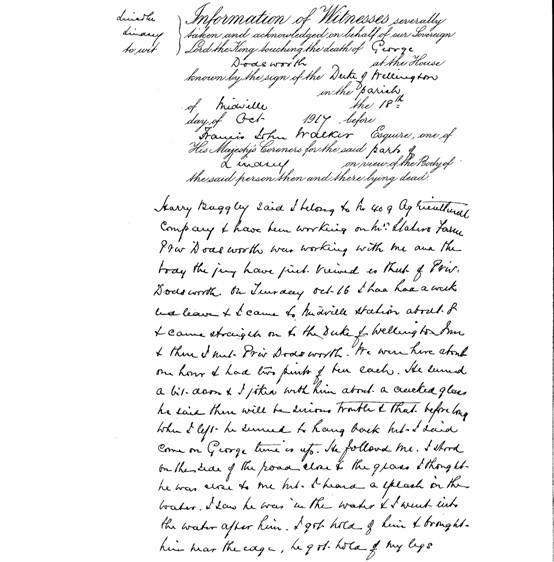 Lincoln
Lindsey
to wit
Information of Witnesses severally
taken and acknowledged on behalf of our Sovereign
Lord the King touching the death of George
Dodsworth at the House
known by the sign of the Duke of Wellington
in the parish
of Midville the 18th
day of Oct 1917 before
Francis John Walker Esquire, one of
His Majesty's Coroners for the said parts of
Lindsey on view of the Body of
the said person then and there lying dead
Harry Baggley said I belong to No 409 Agricultural
Company & have been working on Mr. Slaters Farm
Priv Dodsworth was working with me and the
body the jury have just viewed is that of Priv.
Dodsworth. On Tuesday Oct. 16 I had had a week
end leave & I came to Midville station about 8
& came straight on to the Duke of Wellington Inn
& there I met Priv Dodsworth. We were here about
one hour & had two pints of beer each. He seemed
a bit down & I joked with him about a cracked glass
he said there will be serious trouble & that before long
When I left he seemed to hang back but I said
come on George time is up. He followed me. I stood
on the side of the road close to the grass I thought
he was close to me but I heard a splash in the
water. I saw he was in the water & I went into
the water after him. I got hold of him & brought
him near the edge, he got hold of my legs